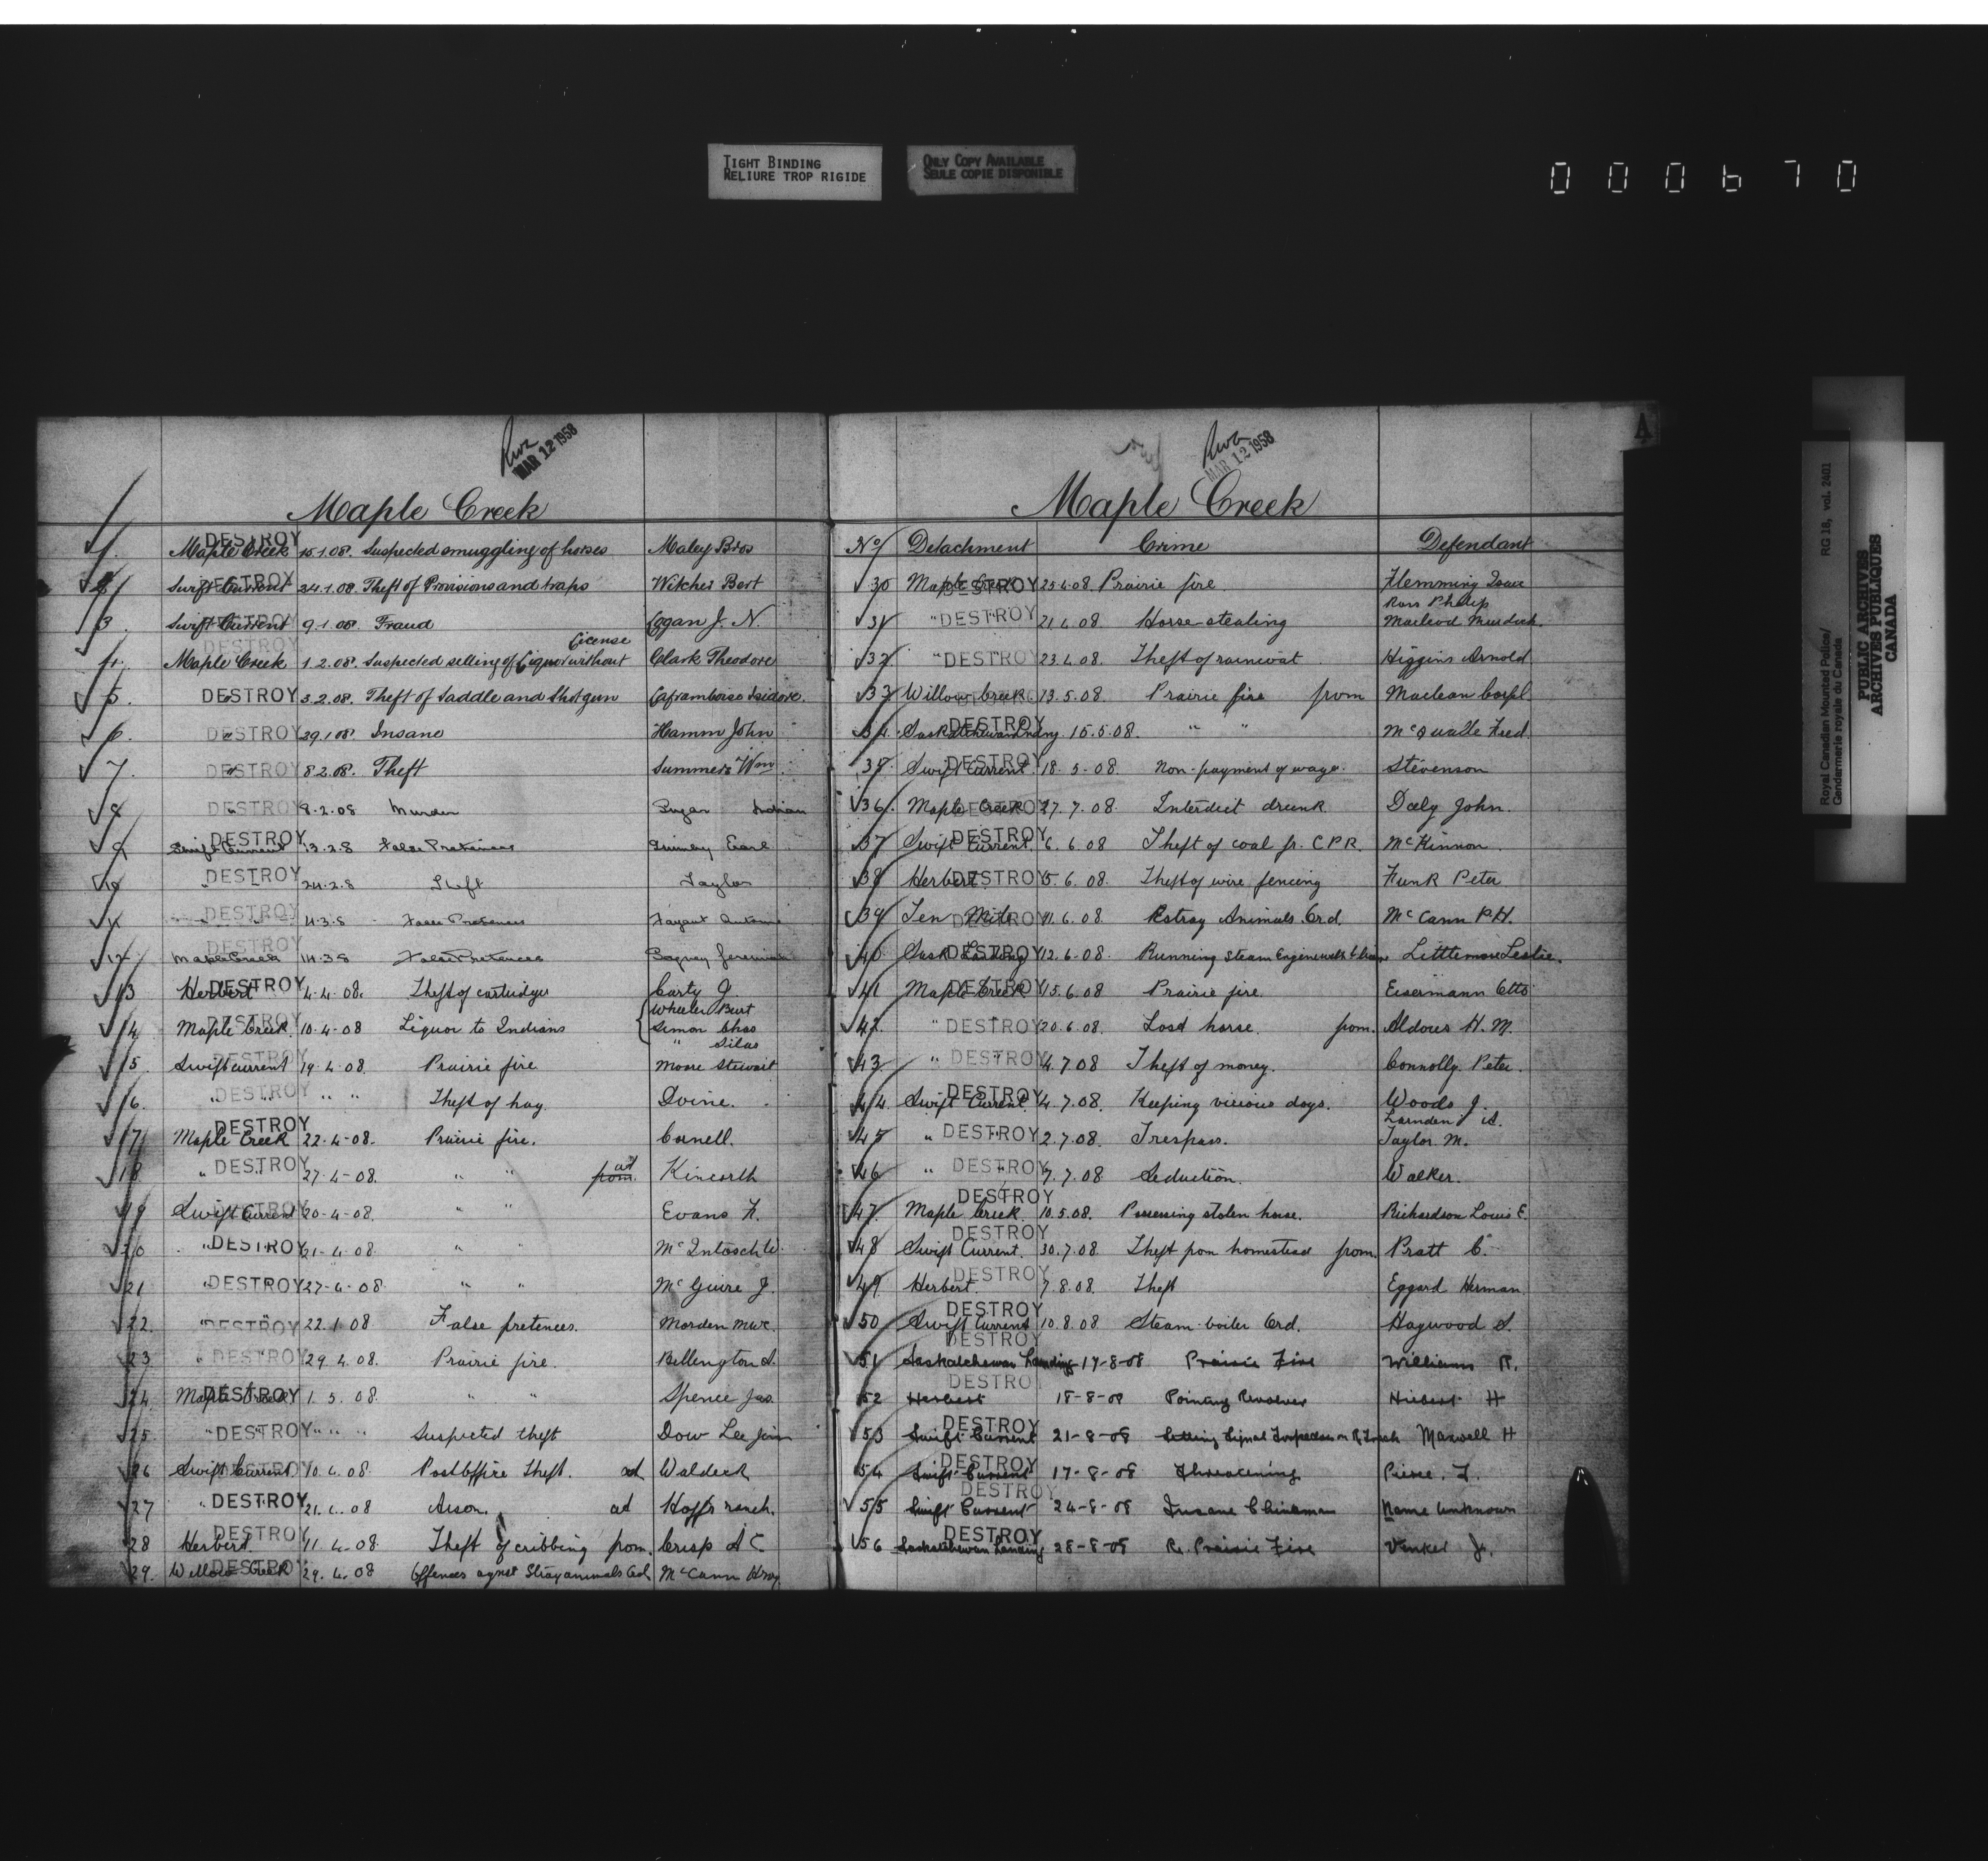 TIGHT BINDING
RELIURE TROP RIGIDE
ONLY COPY AVAILABLE
SEULE COPIE DISPONIBLE
000670
MAR 12 1958
Maple Creek
1. Maple Creek 15.1.08. Suspected smuggling of horses Maley Bros
2 Swift Current 24.1.08. Theft of Provisions and traps Witcher Bert
3. Swift Current 9.1.08. Fraud Eggan J. N.
License
4. Maple Creek 1.2.08. Suspected selling of Liquor without Clark Theodore
5. DESTROY 3.2.08. Theft of Saddle and Shotgun Laframboise Isidore.
6. " DESTROY 29.1.08. Insane Hamm John
7. " DESTROY 8.2.08. Theft Summers Wm.
8 " DESTROY 8.2.08 Murder Indian
9 Swift Current DESTROY 13.2.8 False Pretences Earl
10 " DESTROY 24.2.8 Theft Taylor
11 " DESTROY 11.3.8 False Pretences Fayant Antoine
12 Maple Creek DESTROY 14.3.8 False Pretences
13 Herbert DESTROY 4.4.08. Theft of cartridges Carty J
Wheeler Burt
14 Maple Creek. DESTROY 10-4-08 Liquor to Indians Simon Chas
" Silas
15. Swift current DESTROY 19-4-08. Prairie fire Moore Stewart
16. " DESTROY " " Theft of hay. Dvine.
17 Maple Creek DESTROY 22-4-08. Prairie fire. Cornell.
18 " DESTROY 27-4-08. " " from at Kincorth
19 Swift Current DESTROY 20-4-08. " " Evans F.
20 " DESTROY 21-4-08 " " McIntosch W.
21 " DESTROY 27-4-08 " " McGuire J.
22. " DESTROY 22.1.08 False pretences. Morden
23. " DESTROY 29.4.08. Prairie fire. Bellington S.
24. Maple Creek DESTROY 1.5.08. " " Spence Jas.
25. " DESTROY " " " Suspected theft Dow Lee Jim
26 Swift Current DESTROY 10.4.08 Post Office Theft. at Waldeck
27 " DESTROY 21.4.08 Arson. at Hoff's ranch.
28 Herbert. DESTROY 11-4-08 Theft of cribbing from. Crisp A C
29. Willow Creek DESTROY 29.4.08 Offences agnst Stray animals Ord. McCann
MAR 12 1958
A
Maple Creek
No Detachment Crime Defendant
30 Maple Creek DESTROY 25.4.08. Prairie fire. Flemming Isaac
Ross Philip
31 " DESTROY 21.4.08 Horse stealing Macleod Murdock.
32 " DESTROY 23.4.08. Theft of raincoat Higgins Arnold
33 Willow Creek DESTROY 13.5.08. Prairie fire from Maclean Corpl.
34. DESTROY 15.5.08. " " McQualle Fred.
35 Swift Current. DESTROY 18.5-08. Non-payment of wages. Stevenson
36. Maple Creek DESTROY 27.7.08. Interdict drunk Daly John.
37 Swift Current. DESTROY 6.6.08 Theft of coal fr. C.P.R. McKinnon.
38 Herbert DESTROY 5.6.08. Theft of wire fencing Funk Peter
39 Ten Mile DESTROY 11.6.08. Estray Animals Ord. McCann P.H.
40 Sask Landing DESTROY 12.6.08. Running Steam Engine Littlemore Leslie.
41 Maple Creek DESTROY 15.6.08 Prairie fire. Eisermann Otto
42. " DESTROY 20.6.08. Lost horse. from. Aldous H. M.
43 " DESTROY 4.7.08 Theft of money. Connolly. Peter.
44. Swift Current. DESTROY 4.7.08. Keeping vicious dogs. Woods J.
45 " DESTROY 2.7.08. Trespass. Taylor M.
46 " DESTROY 7.7.08 Seduction. Walker.
47. Maple Creek. DESTROY 10.5.08. Possessing stolen horse. Richardson Louis E.
48 Swift Current. DESTROY 30.7.08. Theft from homestead from. Pratt C.
49. Herbert. DESTROY 7.8.08. Theft Eggard Herman
50 Swift Current DESTROY 10.8.08 Steam-boiler Ord. Haywood S.
51 Saskatchewan Landing DESTROY 17-8-08 Prairie Fire Williams R.
52 Herbert DESTROY 18-8-08 Pointing Revolver Hiebert H
53 Swift Current DESTROY 21-8-08 Setting Signal Torpedoes on R. Track Maxwell H
54 Swift Current DESTROY 17-8-08 Threatening Pierce. T.
55 Swift Current DESTROY 24-8-08 Insane Chinaman Name Unknown
56 Saskatchewan Landing DESTROY 28-8-08 Re. Prairie Fire Venkel J.
Royal Canadian Mounted Police/ RG 18, vol. 2401
Gendarmerie royale du Canada
PUBLIC ARCHIVES
ARCHIVES PUBLIQUES
CANADA